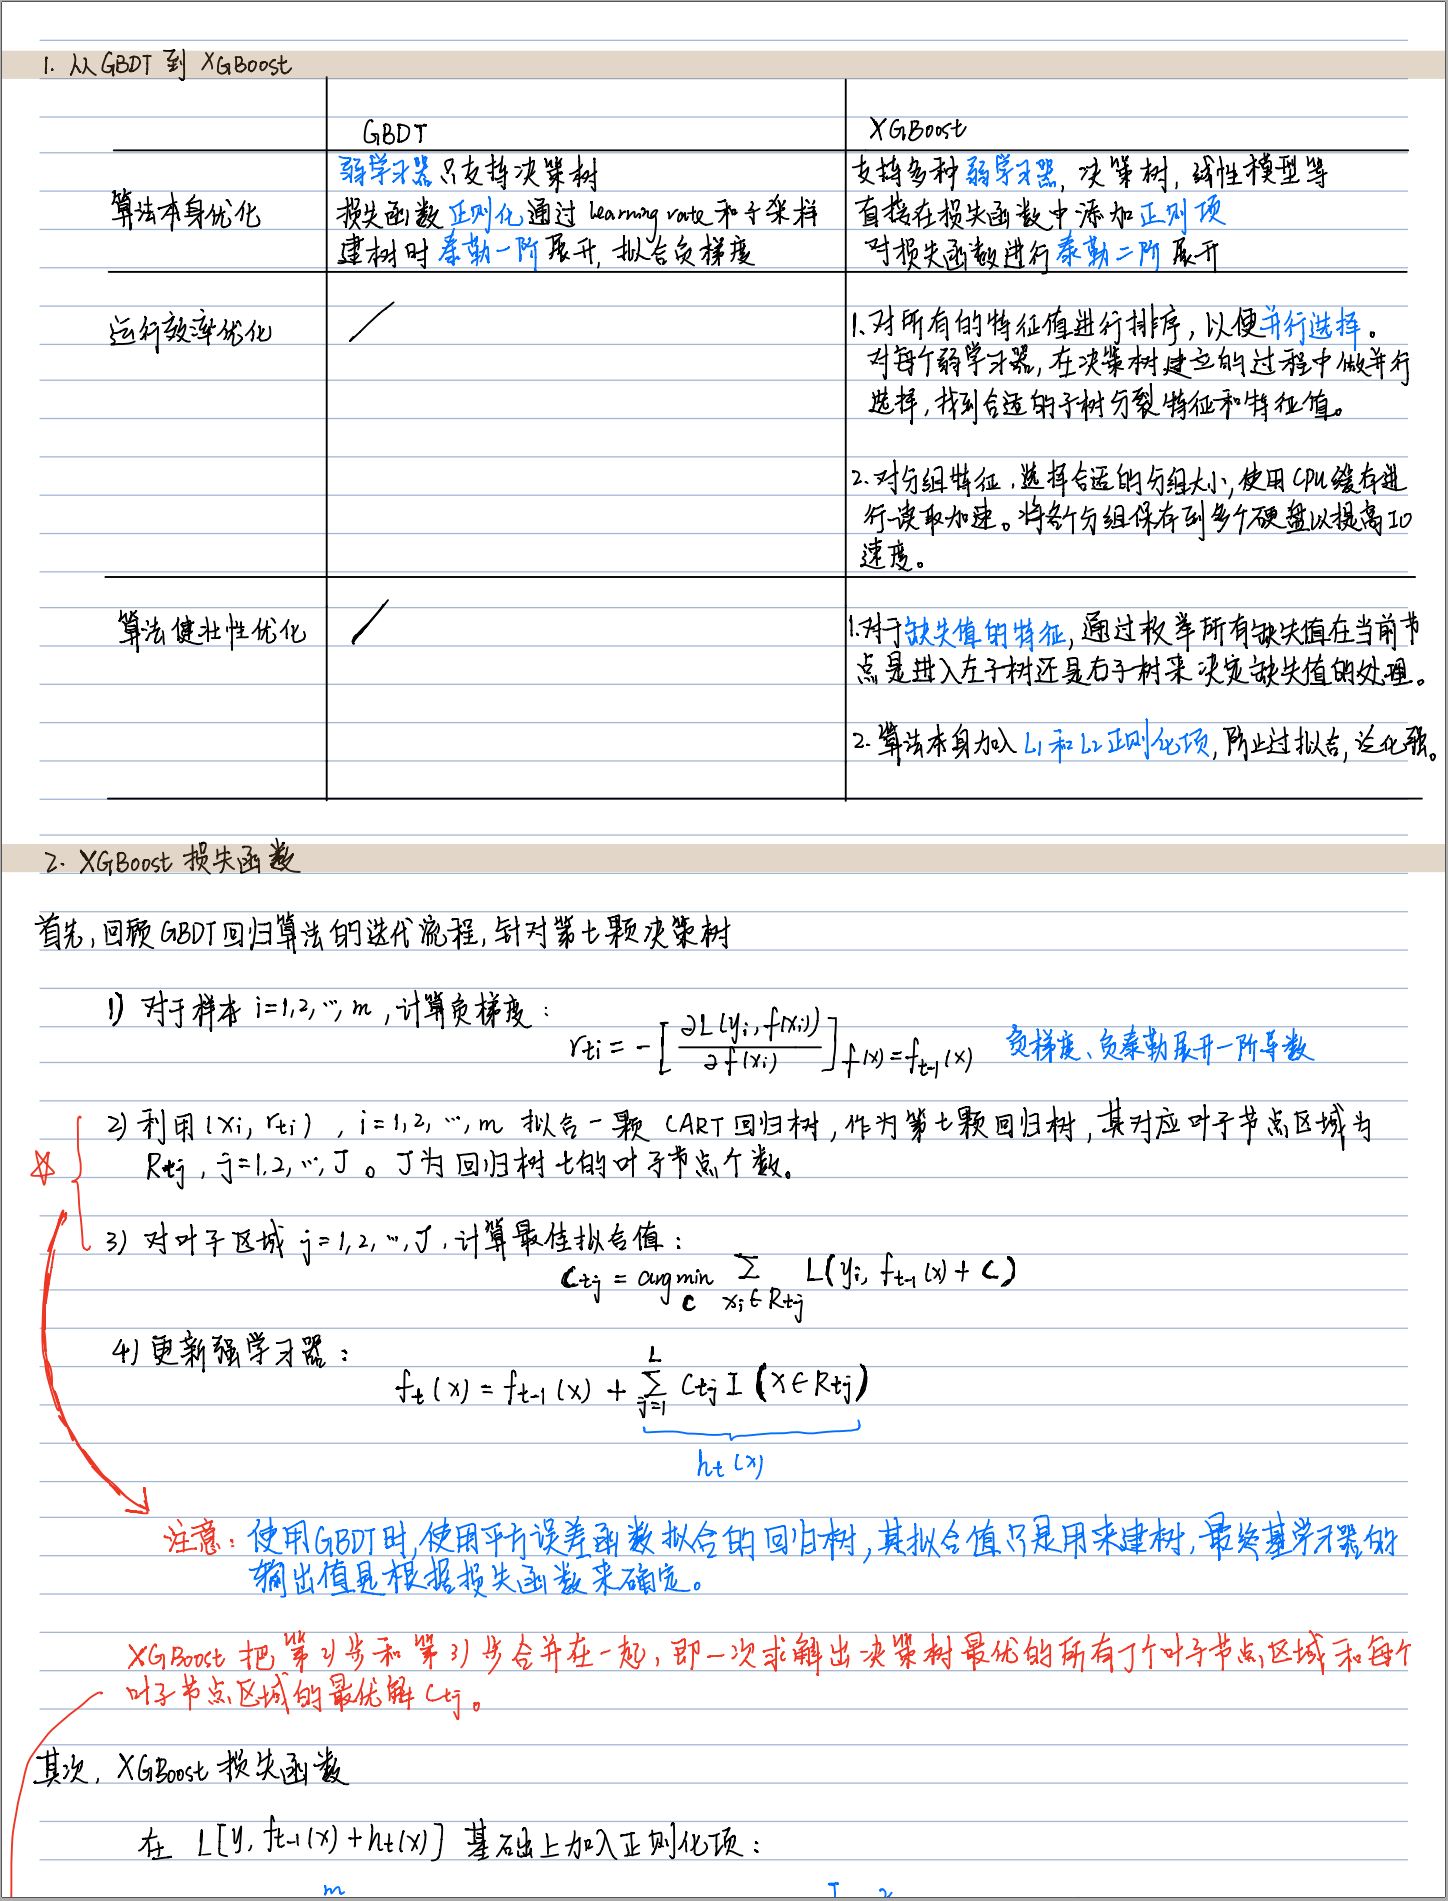 1. 从GBDT到 XGBoost
GBDT
XGBoost
算法本身优化
弱学习器只支持决策树
损失函数正则化通过 learning rate 和子采样
建树时泰勒一阶展开, 拟合负梯度
支持多种弱学习器, 决策树, 线性模型等
直接在损失函数中添加正则项
对损失函数进行泰勒二阶展开
运行效率优化
/
1. 对所有的特征值进行排序, 以便并行选择。
对每个弱学习器, 在决策树建立的过程中做并行
选择, 找到合适的子树分裂特征和特征值。
2. 对分组特征, 选择合适的分组大小, 使用CPU缓存进
行读取加速。将各个分组保存到多个硬盘以提高IO
速度。
算法健壮性优化
/
1. 对于缺失值的特征, 通过枚举所有缺失值在当前节
点是进入左子树还是右子树来决定缺失值的处理。
2. 算法本身加入 L1 和 L2 正则化项, 防止过拟合, 泛化强。
2. XGBoost 损失函数
首先, 回顾GBDT回归算法的迭代流程, 针对第t颗决策树
1) 对于样本 i=1,2,…,m, 计算负梯度:
rti = -[∂L(yi, f(xi)) / ∂f(xi)] f(x)=ft-1(x) 负梯度、负泰勒展开一阶导数
2) 利用(xi, rti), i=1,2,…,m 拟合一颗 CART回归树, 作为第t颗回归树, 其对应叶子节点区域为
Rtj, j=1,2,…,J。J为回归树t的叶子节点个数。
3) 对叶子区域 j=1,2,…,J, 计算最佳拟合值:
Ctj = argmin c ∑ xi∈Rtj L(yi, ft-1(x) + c)
4) 更新强学习器:
ft(x) = ft-1(x) + ∑ j=1 L Ctj I (x∈Rtj)
ht(x)
注意: 使用GBDT时, 使用平方误差函数拟合的回归树, 其拟合值只是用来建树, 最终基学习器的
输出值是根据损失函数来确定。
XGBoost 把第2)步和第3)步合并在一起, 即一次求解出决策树最优的所有J个叶子节点区域和每个
叶子节点区域的最优解Ctj。
其次, XGBoost 损失函数
在 L[y, ft-1(x)+ht(x)] 基础上加入正则化项: